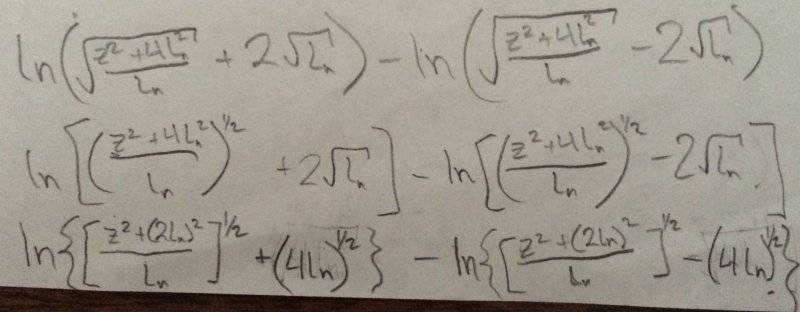 ln(√((z² + 4Lₙ²)/Lₙ) + 2√Lₙ) − ln(√((z² + 4Lₙ²)/Lₙ) − 2√Lₙ)
ln[((z² + 4Lₙ²)/Lₙ)^1/2 + 2√Lₙ] − ln[((z² + 4Lₙ²)/Lₙ)^1/2 − 2√Lₙ]
ln{[(z² + (2Lₙ)²)/Lₙ]^1/2 + (4Lₙ)^1/2} − ln{[(z² + (2Lₙ)²)/Lₙ]^1/2 − (4Lₙ)^1/2}